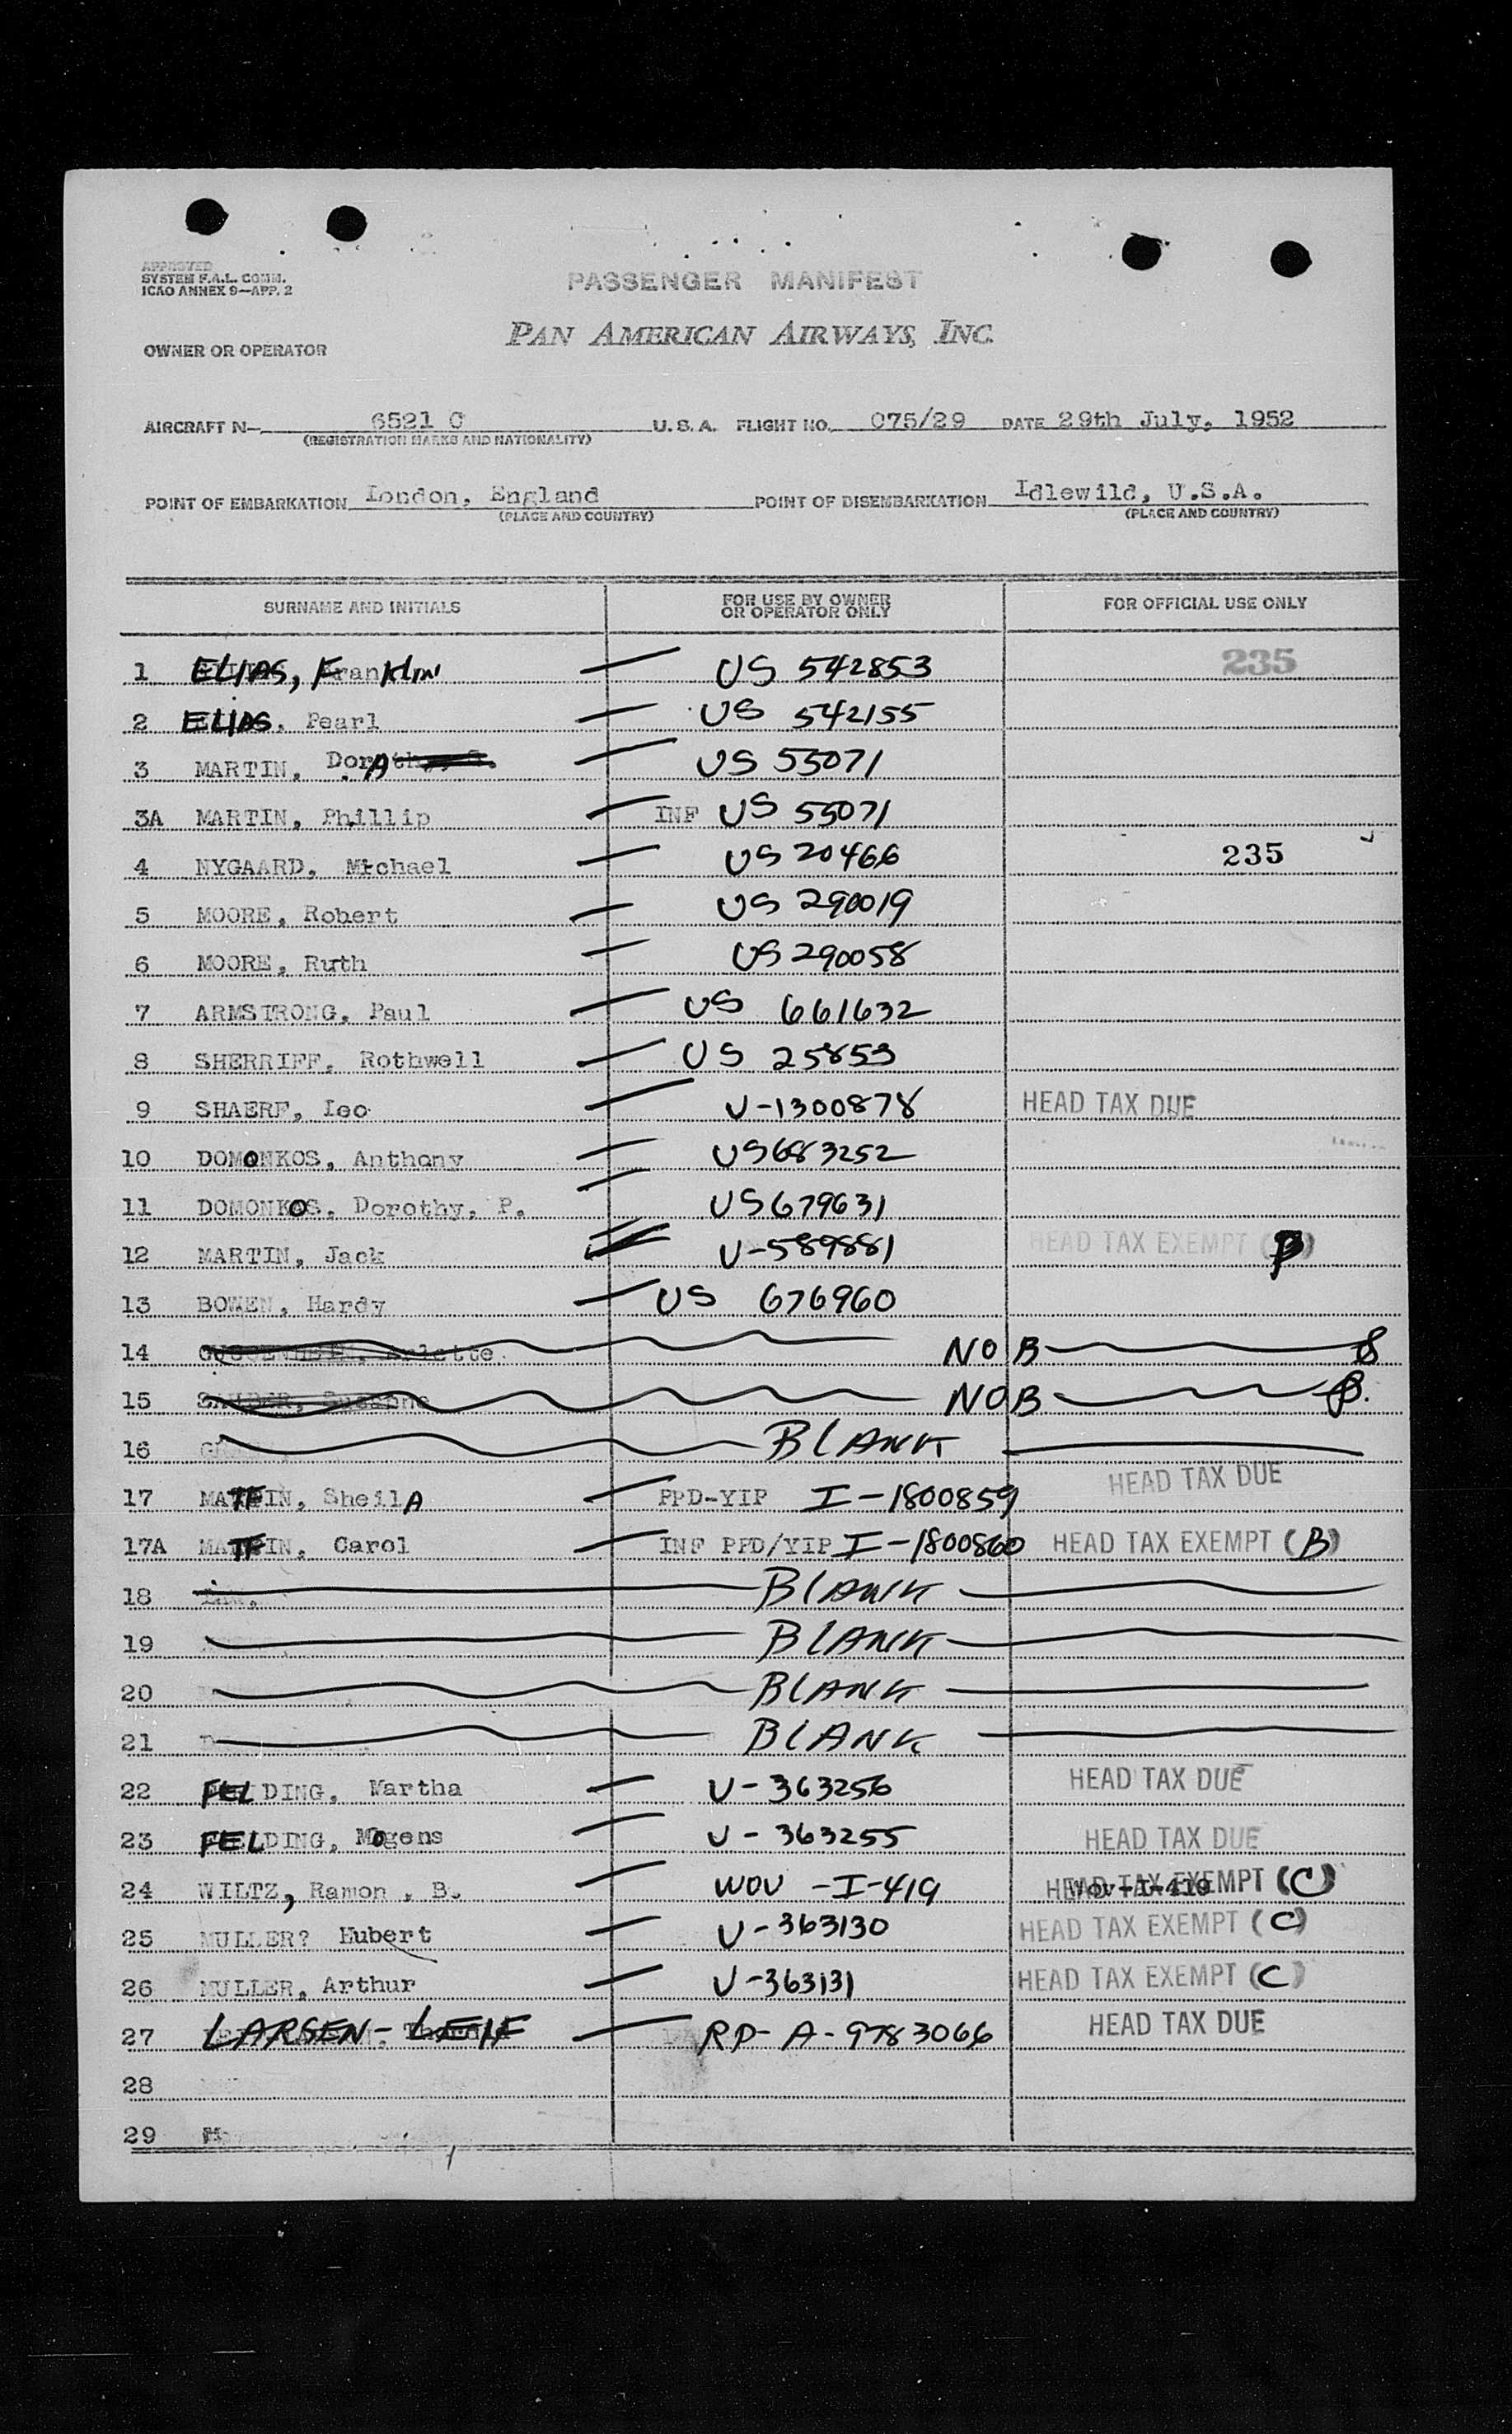 APPROVED
SYSTEM F.A.L. COMM.
ICAO ANNEX 9—APP. 2
PASSENGER MANIFEST
PAN AMERICAN AIRWAYS, INC.
OWNER OR OPERATOR
AIRCRAFT N— 6521 C U. S. A. FLIGHT NO. 075/29 DATE 29th July, 1952
(REGISTRATION MARKS AND NATIONALITY)
POINT OF EMBARKATION London, England POINT OF DISEMBARKATION Idlewild, U.S.A.
(PLACE AND COUNTRY) (PLACE AND COUNTRY)
SURNAME AND INITIALS FOR USE BY OWNER OR OPERATOR ONLY FOR OFFICIAL USE ONLY
1 ELIAS, Franklin US 542853 235
2 ELIAS, Pearl US 542155
3 MARTIN, Dora US 55071
3A MARTIN, Phillip INF US 55071
4 NYGAARD, Michael US 20466 235
5 MOORE, Robert US 290019
6 MOORE, Ruth US 290058
7 ARMSTRONG, Paul US 661632
8 SHERRIFF, Rothwell US 25853
9 SHAERF, Leo U-1300878 HEAD TAX DUE
10 DOMONKOS, Anthony US 683252
11 DOMONKOS, Dorothy, P. US 679631
12 MARTIN, Jack U-589881 HEAD TAX EXEMPT (B)
13 BOWEN, Hardy US 676960
14 Arlette NOB
15 NOB
16 BLANK
17 MATFIN, Sheila PPD-YIP I-1800859 HEAD TAX DUE
17A MATFIN, Carol INF PPD/YIP I-1800860 HEAD TAX EXEMPT (B)
18 BLANK
19 BLANK
20 BLANK
21 BLANK
22 FELDING, Martha U-363256 HEAD TAX DUE
23 FELDING, Mogens U-363255 HEAD TAX DUE
24 WILTZ, Ramon, B. WOV-I-419 HEAD TAX EXEMPT (C)
25 MULLER? Hubert U-363130 HEAD TAX EXEMPT (C)
26 MULLER, Arthur U-363131 HEAD TAX EXEMPT (C)
27 LARSEN-LEIF RP-A-9783066 HEAD TAX DUE
28
29